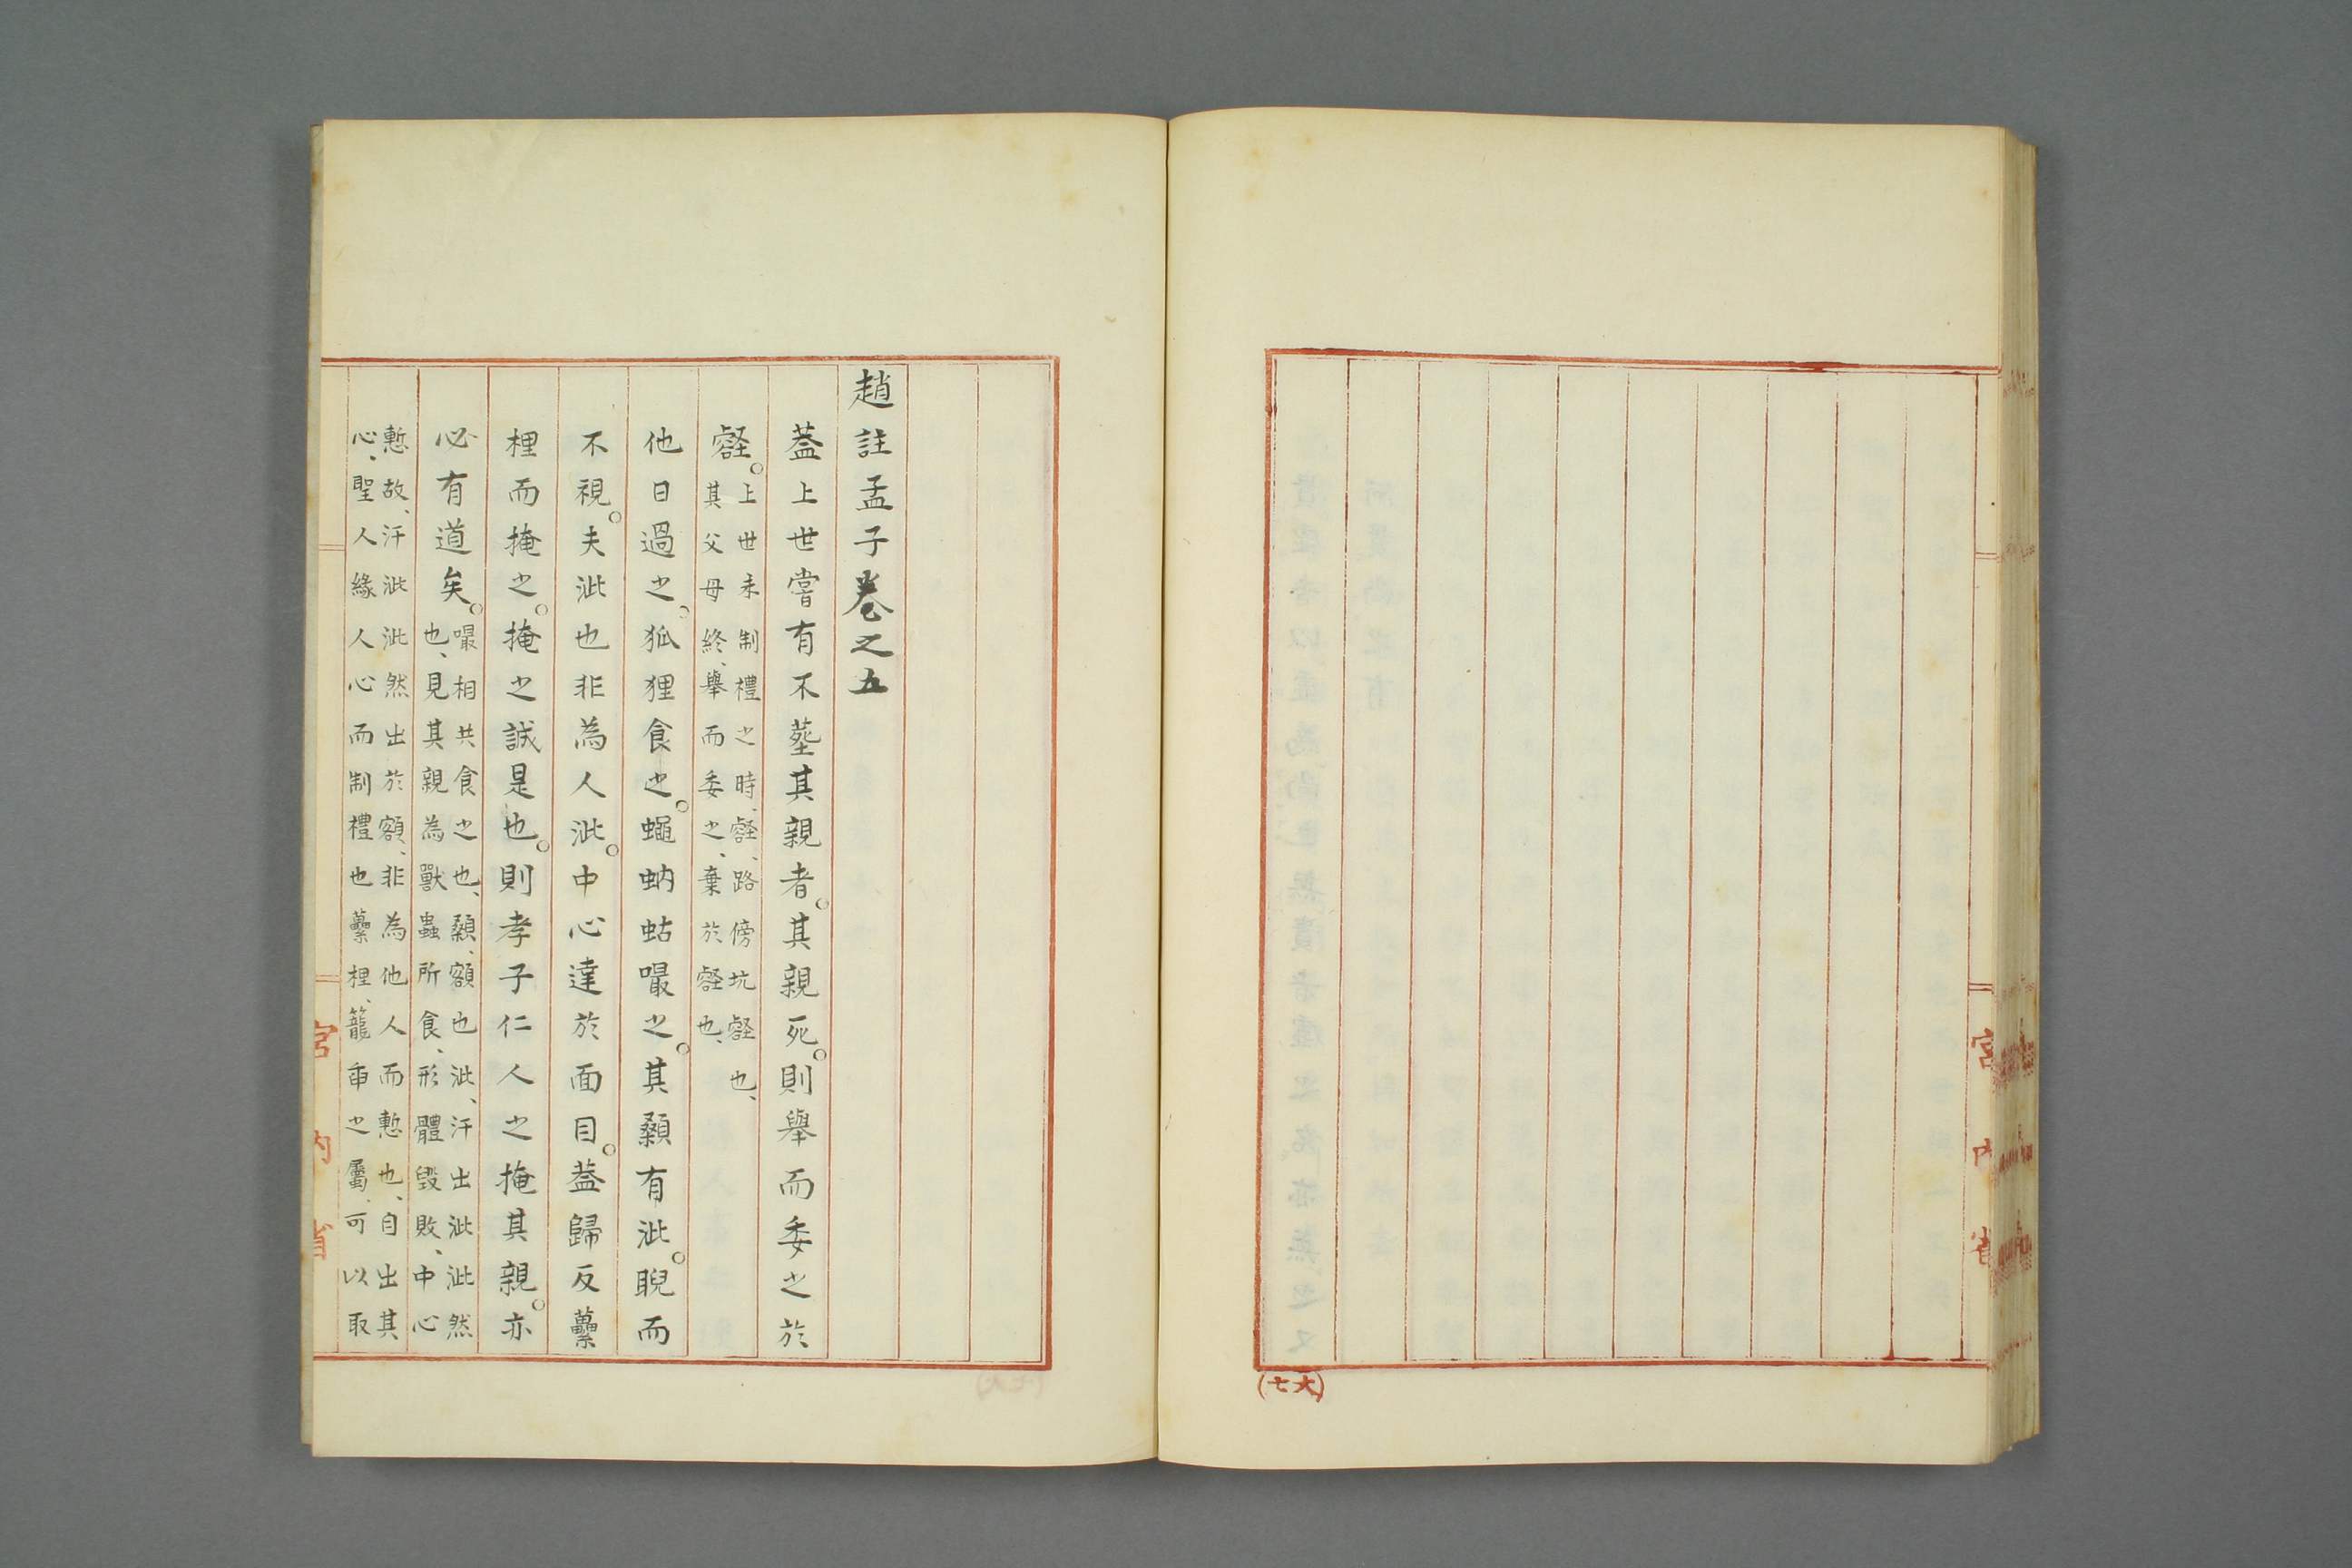 (七大)
宮内省
趙註孟子卷之五
葢上世嘗有不塟其親者。其親死。則舉而委之於
壑。上世未制禮之時、壑、路傍坑壑也、
其父母終、舉而委之、棄於壑也、
他日過之。狐狸食之。蠅蚋蛄嘬之。其顙有泚。睨而
不視。夫泚也非為人泚。中心達於面目。葢歸反虆
梩而掩之。掩之誠是也。則孝子仁人之掩其親。亦
必有道矣。嘬相共食之也、顙、額也泚、汗出泚泚然
也、見其親為獸蟲所食、形體毀敗、中心
慙故、汗泚泚然出於額、非為他人而慙也、自出其
心、聖人緣人心而制禮也虆梩、籠臿之屬、可以取
宮内省